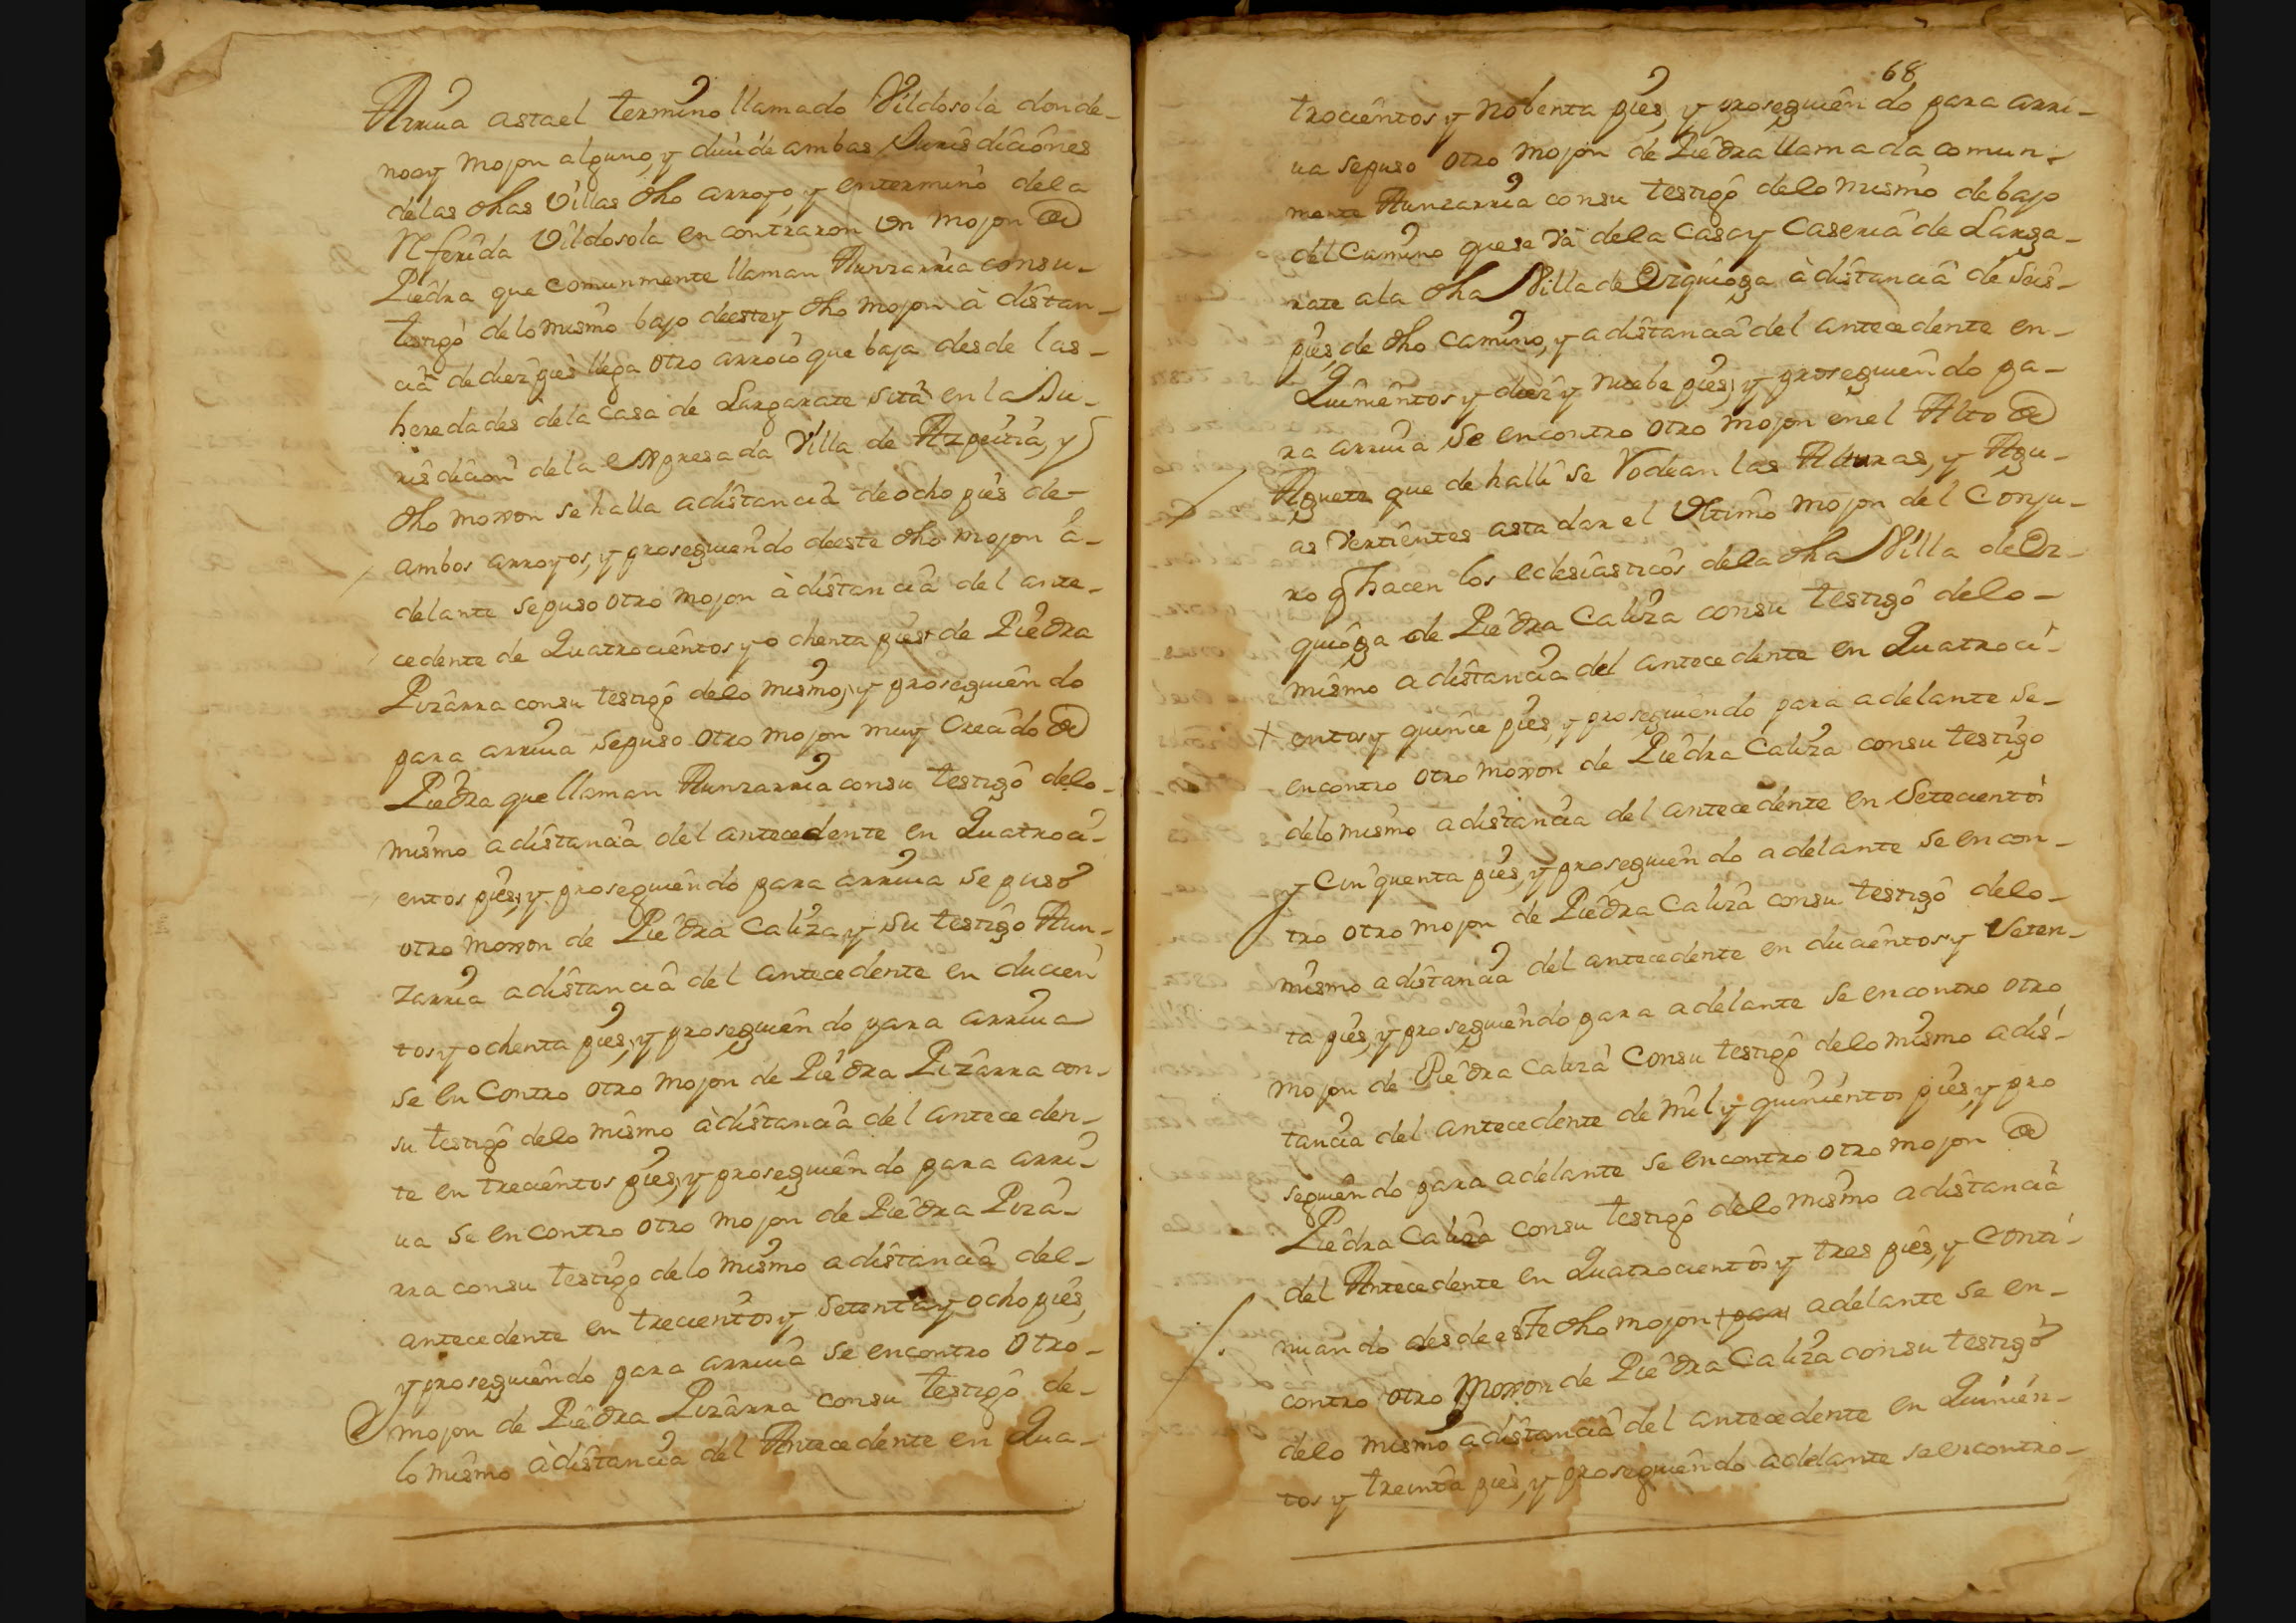 Arriua asta el termino llamado Vildosola donde-
no ay mojon alguno, y diuide ambas Jurisdiciones
de las dhas Villas dho arroyo, y en termino de la
Referida Vildosola encontraron Un mojon de
Piedra que comunmente llaman Aunzarria con su-
testigo de lo mismo bajo de este y dho mojon à distan-
cia de diez pies llega otro arroio que baja desde las-
heredades de la casa de Largarate sita en la Ju-
risdicion de la Expresada Villa de Azpeitia, y
dho moxon se halla a distancia de ocho pies de-
ambos arroyos, y prosegiendo de este dho mojon a-
delante se puso otro mojon à distancia del ante-
cedente de Quatrocientos y ochenta pies de Piedra
Pizarra con su testigo de lo mismo, y prosegiendo
para arriua se puso otro mojon muy Creado de
Piedra que llaman Aunzarria con su testigo de lo-
mismo a distancia del antecedente en Quatroci-
entos pies, y prosegiendo para arriua se puso
otro moxon de Piedra Caliza y su testigo Aun-
zarria a distancia del antecedente en ducien
tos y ochenta pies, y prosegiendo para arriua
se en Contro otro mojon de Piedra Pizarra con-
su testigo de lo mismo à distancia del anteceden-
te en trecientos pies, y prosegiendo para arri-
ua se encontro otro mojon de Piedra Piza-
rra con su testigo de lo mismo a distancia del-
antecedente en trecientos y setenta y ocho pies,
y prosegiendo para arriua se encontro otro-
mojon de Piedra Pizarra con su testigo de-
lo mismo à distancia del Antecedente en Qua-
68
trocientos y nobenta pies, y prosegiendo para arri-
ua se puso otro mojon de Piedra llamada comun-
mente Aunzarria con su testigo de lo mismo debajo
del Camino que se Va de la Casa y Caseria de Larga-
rate a la dha Villa de Ezquioga à distancia de Seis-
pies de dho camino, y a distancia del antecedente en-
Quinientos y diez y nuebe pies, y prosegiendo pa-
ra arriua se encontro otro mojon en el Alto de
Aguete que de halli se Rodean las Alturas, y Agu-
as Vertientes asta dar el Ultimo mojon del Conju-
ro q hacen los eclesiasticos de la dha Villa de Ez-
quioga de Piedra Caliza con su testigo de lo-
mismo a distancia del antecedente en Quatroci-
entos y quince pies, y prosegiendo para adelante se-
encontro otro moxon de Piedra Caliza con su testigo
de lo mismo a distancia del antecedente en Setecientos
y Cinquenta pies, y prosegiendo adelante se encon-
tro otro mojon de Piedra Caliza con su testigo de lo-
mismo a distancia del antecedente en ducientos y Seten-
ta pies, y prosegiendo para adelante se encontro otro
mojon de Piedra Caliza Con su testigo de lo mismo a dis-
tancia del antecedente de mil y quinientos pies, y pro
segiendo para adelante se encontro otro mojon de
Piedra Caliza con su testigo de lo mismo a distancia
del Antecedente en Quatrocientos y tres pies, y Conti-
nuando desde este dho mojon adelante se en-
contro otro Moxon de Piedra Caliza con su testigo
de lo mismo a distancia del antecedente en Quinien-
tos y treinta pies, y prosegiendo adelante se encontro-